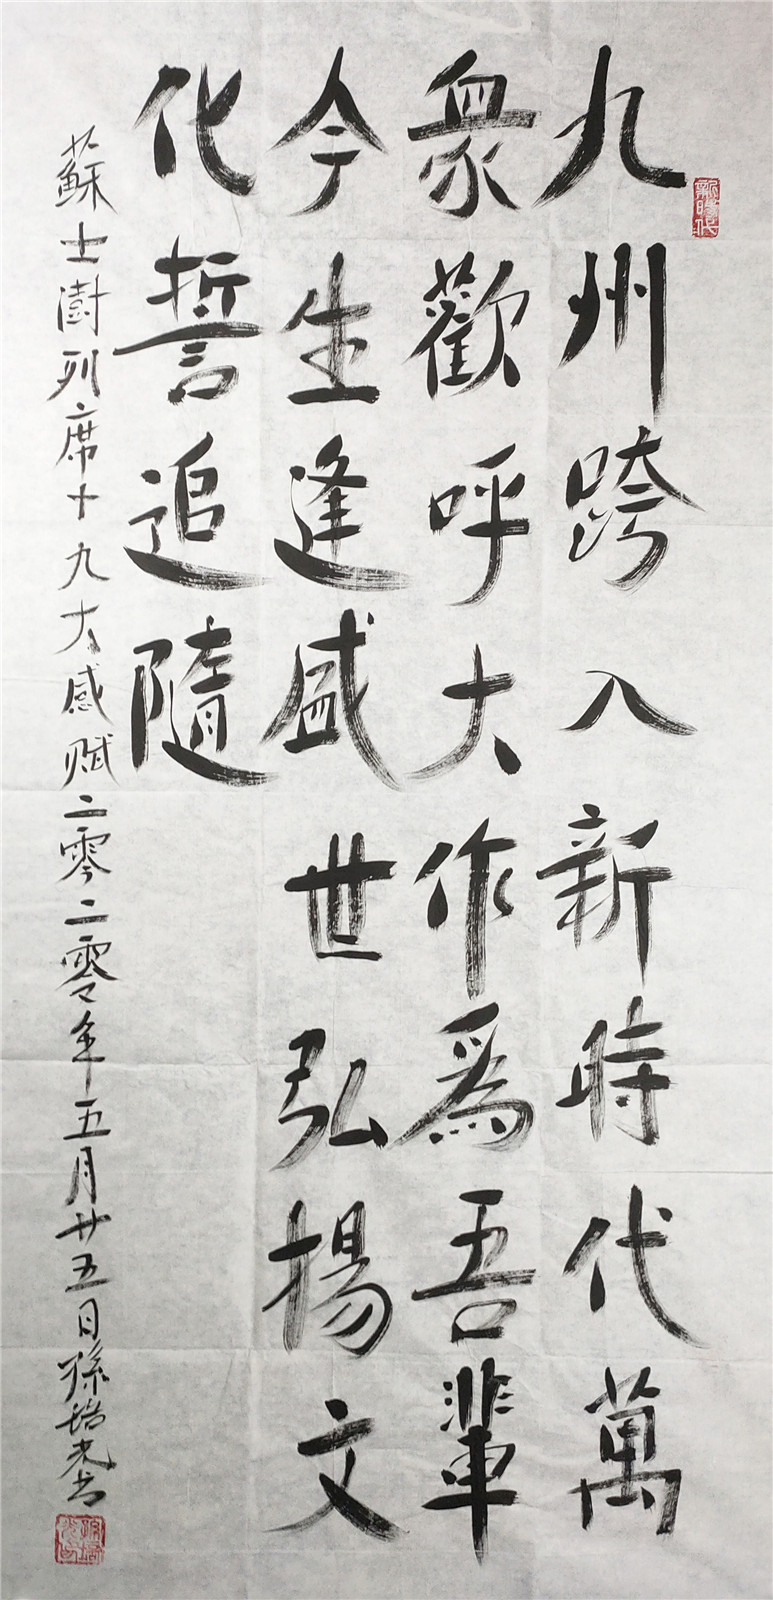 九州跨入新時代萬
衆歡呼大作爲吾輩
今生逢盛世弘揚文
化誓追隨
蘇士澍列席十九大感赋二零二零年五月廿五日孫培光书
新時代